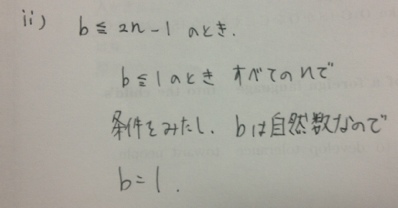 ii) b ≦ 2n-1 のとき.
b ≦ 1 のとき すべてのnで
条件をみたし、bは自然数なので
b = 1.